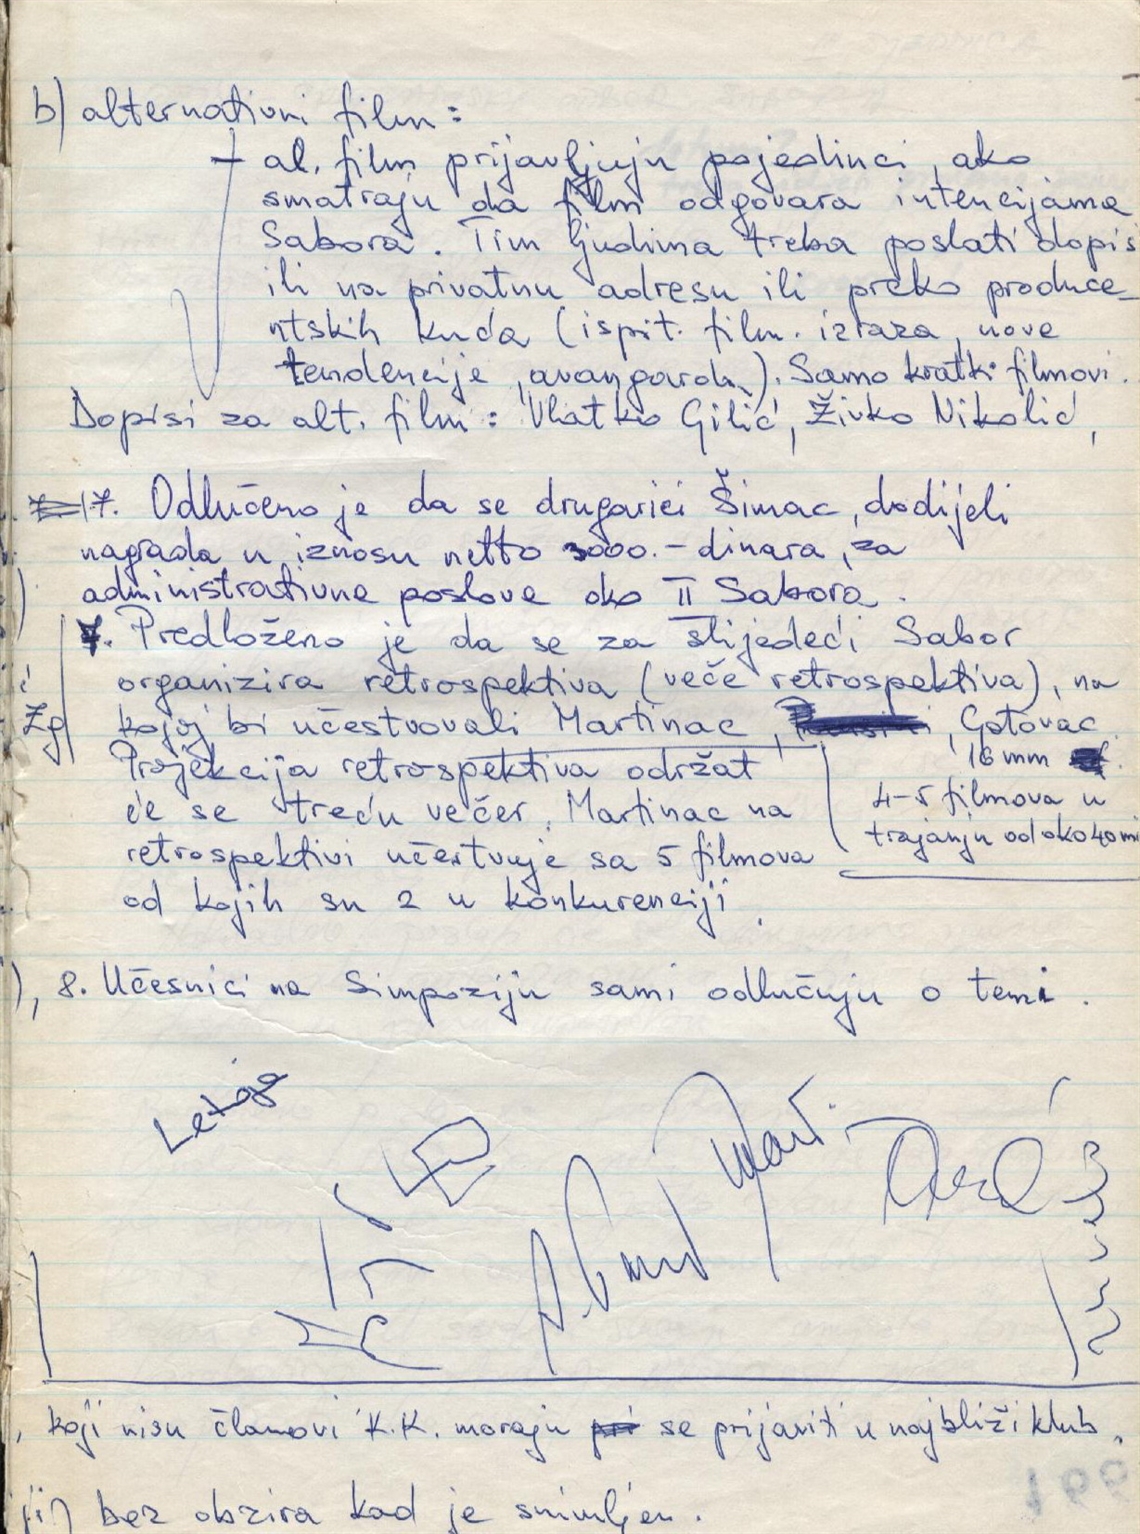 b) alternativni film:
– al. film prijavljuju pojedinci, ako
smatraju da film odgovara intencijama
Sabora. Tim ljudima treba poslati dopis
ili na privatnu adresu ili preko produce-
ntskih kuća (ispit. film. izraza, nove
tendencije, avangarda). Samo kratki filmovi.
Dopisi za alt. film: Vlatko Gilić, Živko Nikolić,
7. Odlučeno je da se drugarici Šimac, dodijeli
nagrada u iznosu netto 3000.- dinara, za
administrativne poslove oko II Sabora.
7. Predloženo je da se za slijedeći Sabor
organizira retrospektiva (veče retrospektiva), na
Zg
kojoj bi učestvovali Martinac, Gotovac.
Projekcija retrospektiva održat
16 mm
će se treću večer. Martinac na
4-5 filmova u
trajanju od oko 40 mi
retrospektivi učestvuje sa 5 filmova
od kojih su 2 u konkurenciji.
), 8. Učesnici na Simpoziju sami odlučuju o temi.
Letaja
Mart.
, koji nisu članovi K.K. moraju se prijaviti u najbliži klub.
bez obzira kad je snimljen.
166